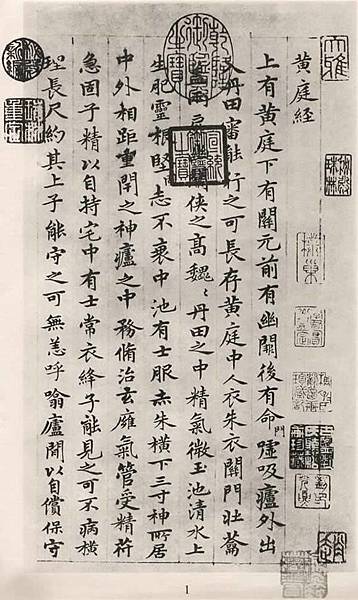 黃庭經
上有黃庭下有關元前有幽闕後有命門噓吸廬外出
入丹田審能行之可長存黃庭中人衣朱衣關門壯籥
俠之高魏〻丹田之中精氣微玉池清水上
生肥靈根堅志不衰中池有士服赤朱橫下三寸神所居
中外相距重閉之神廬之中務脩治玄廱氣管受精苻
急固子精以自持宅中有士常衣絳子能見之可不病橫
理長尺約其上子能守之可無恙呼噏廬閒以自償保守
大雅
乾隆御覽之寶
1